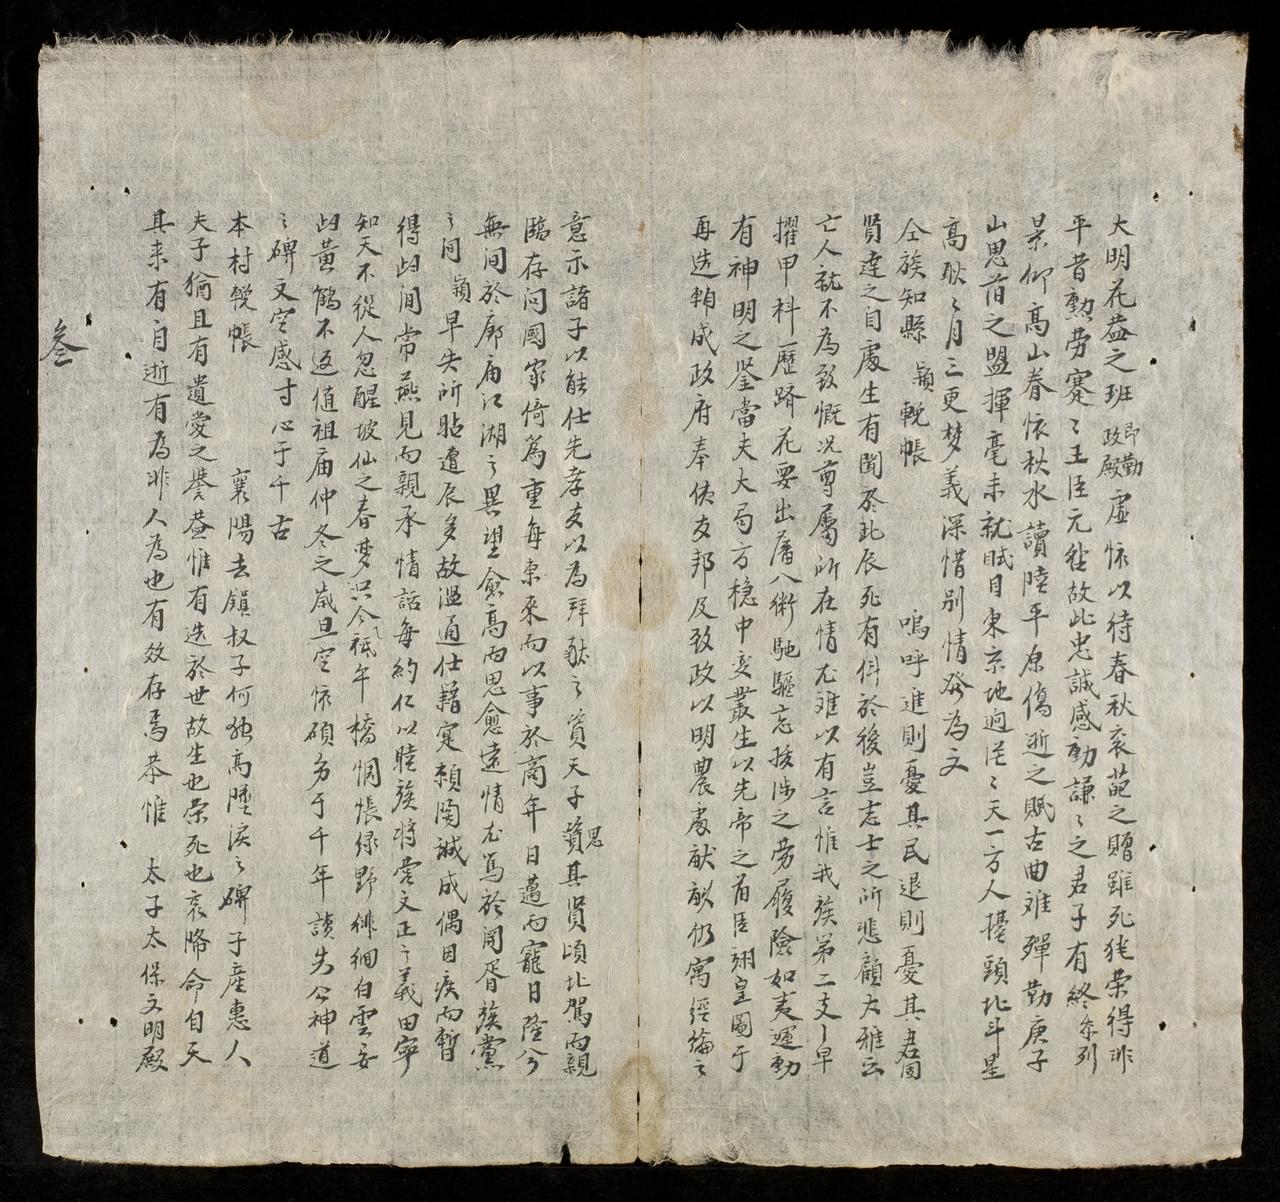 大明花蓋之班即勤政殿虛懷以待春秋衮葩之贈雖死猶荣得非
平昔勲劳蹇〻王臣元從故此忠誠感動謙〻之君子有終忝列
景仰高山眷怀秋水讀陸平原傷逝之賦古曲难殫勤庚子
山思旧之盟揮毫未就眡目東京地迥茫〻天一方人擡頭北斗星
高耿〻月三更梦義深惜别情發為文
仝族知縣 穎輓帳 嗚呼進則憂其民退則憂其君固
賢達之自處生有聞於此辰死有俱於後豈志士之所悲顧大雅云
亡人就不為致慨况尊屬所在情尤难以有言惟我族第二支早
擢甲科歷躋花要出蕃入術馳驅忘跋涉之劳履險如夷運動
有神明之鑒當夫大局方穏中变叢生以先帝之旧臣翊皇圖于
再造頼成政府奉使友邦及致政以明農處献畝仍寓經綸之
意示諸子以能仕先孝友以為拜献之資天子賚思其賢頃北駕而親
臨存问國家倚為重每東來而以事於商年日邁而寵日隆分
無间於廊庙江湖之異望愈高而思愈遠情尤篤於閭胥蔟黨
之间穎早失所貼遭辰多故溫通仕籍寔頼陶誠成偶因疾而暫
得此间常燕見而親承情話每約仁以睦族将常文正之義田寧
知天不從人忽醒坡仙之春梦只今祇年橋惆悵绿野徘徊白雲妄
此黄鶴不返值祖庙仲冬之歲旦空懷碩多于千年讀失公神道
之碑文空感寸心于千古
本村輓帳 襄陽去鎮叔子何独高墮淚之碑子産惠人
夫子猶且有遺愛之譽葢惟有造於世故生也荣死也哀降命自天
其来有自逝有為非人為也有效存焉恭惟 太子太保文明殿
叁